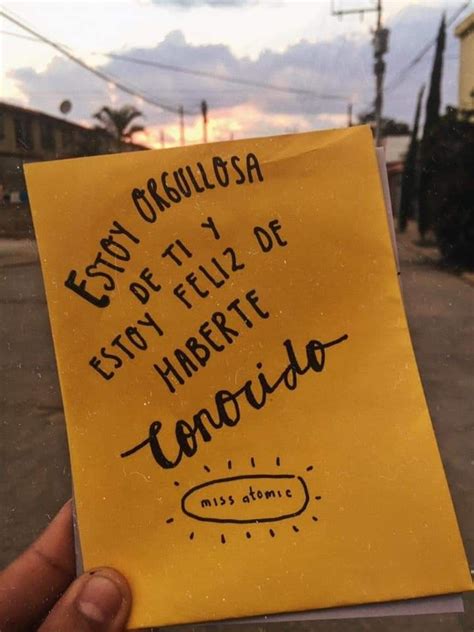 ESTOY ORGULLOSA
DE TI Y
ESTOY FELIZ DE
HABERTE
conocido
miss atomic